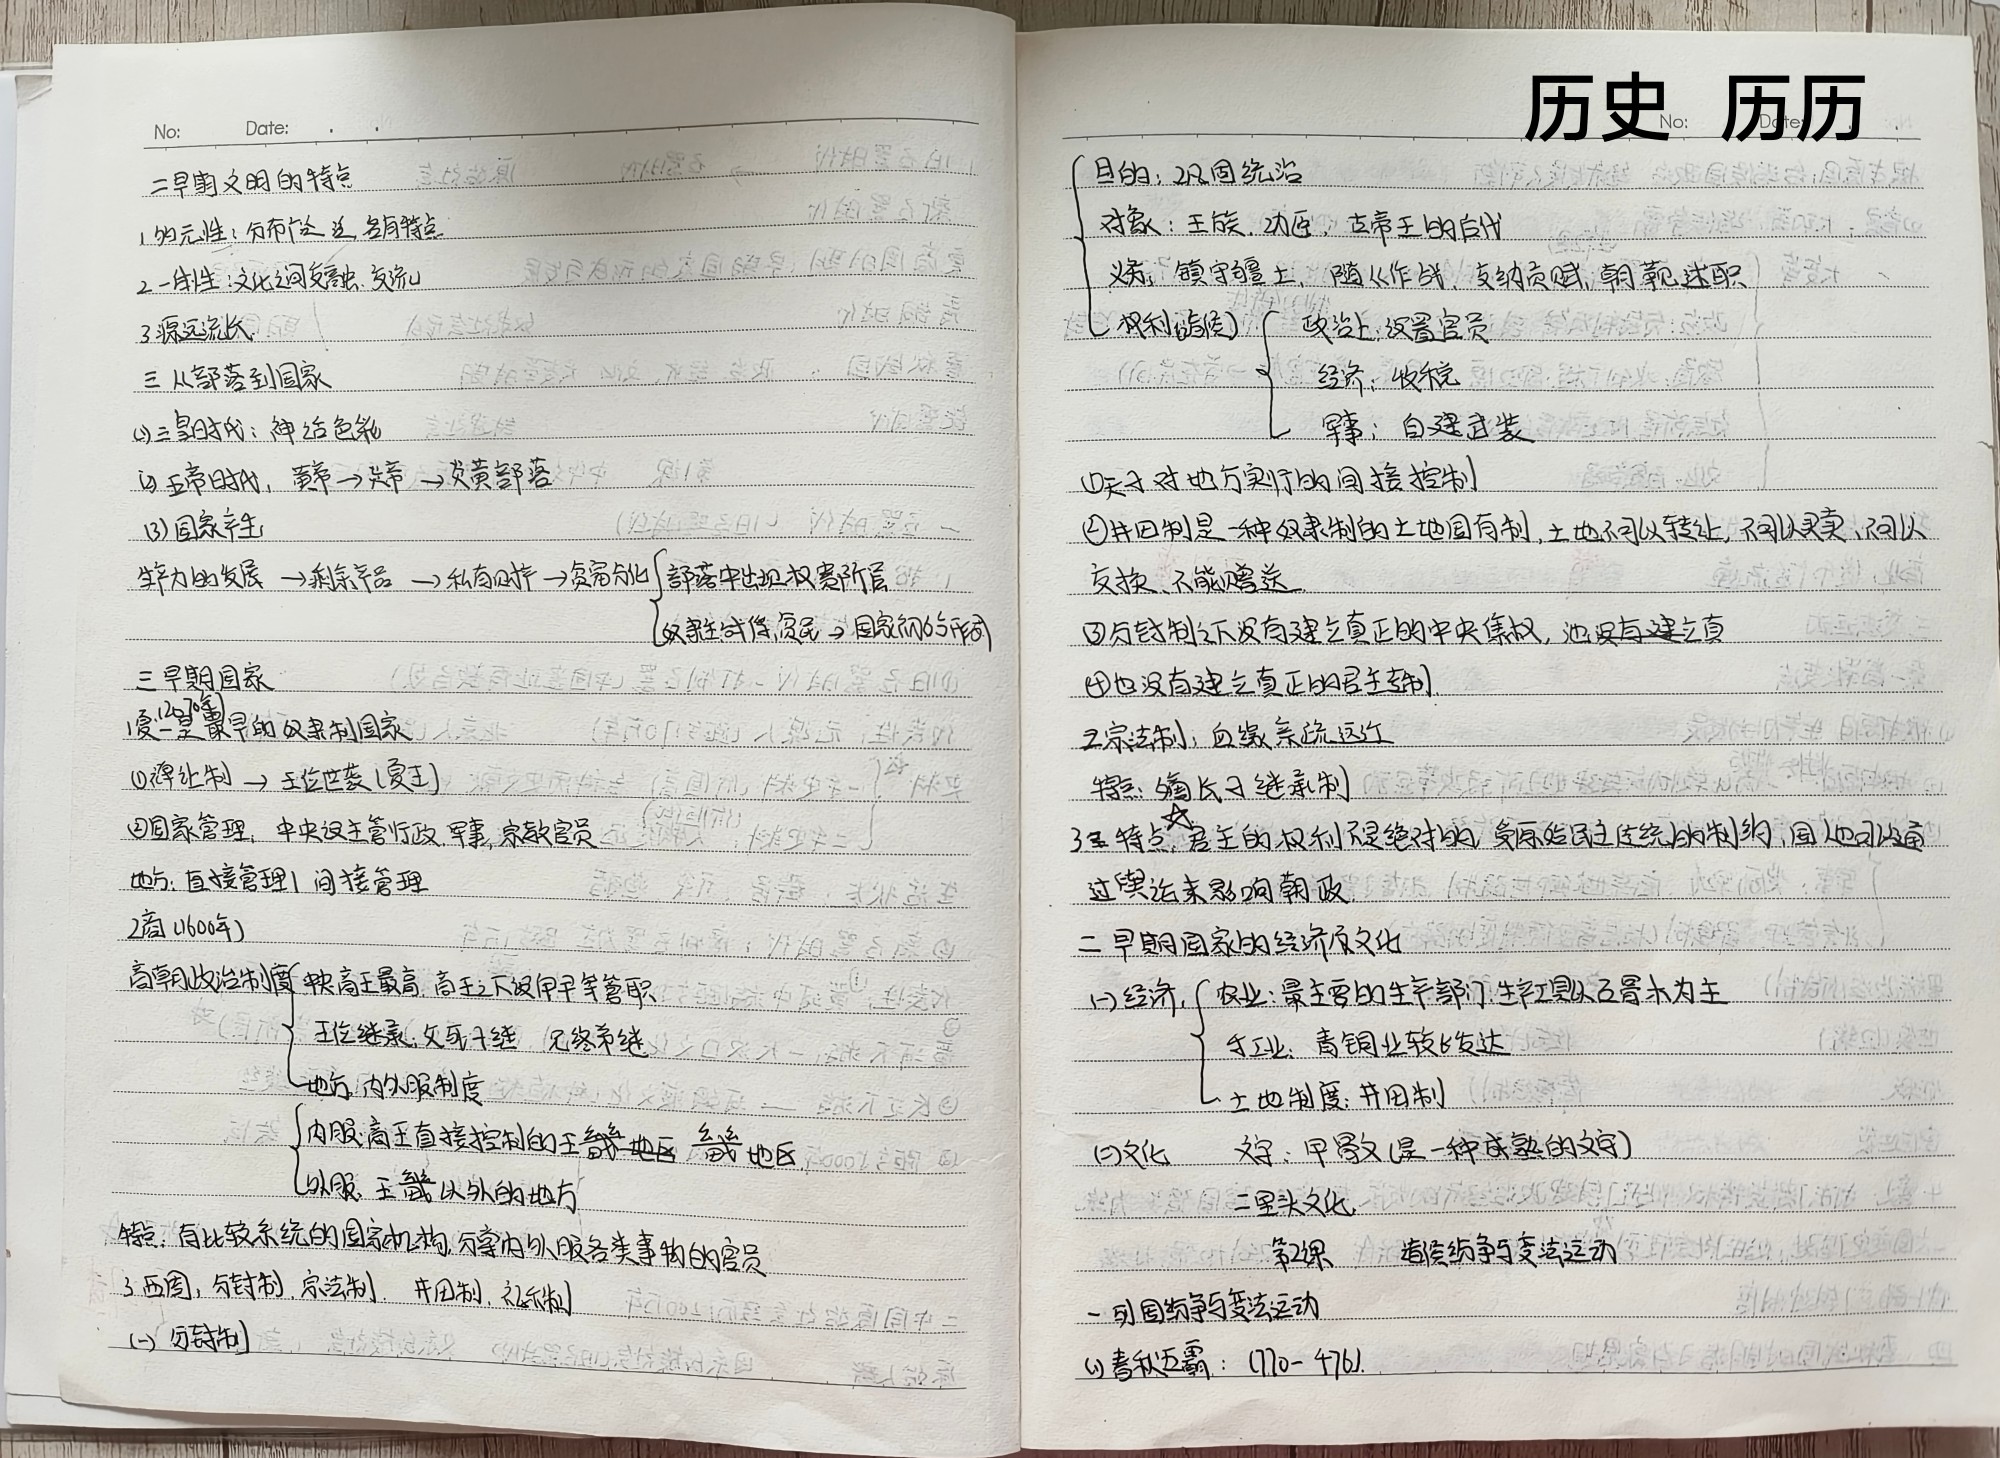 历史 历历
No: Date:
二早期文明的特点
1多元性:分布广泛,各有特点
2一体性:文化之间交融.交流
3源远流长.
三 从部落到国家
(1)三皇时代:神话色彩
(2)五帝时代,黄帝→炎帝→炎黄部落
(3)国家产生
生产力的发展→剩余产品→私有财产→贫富分化 部落中出现权贵阶层
奴隶主.战俘,贫民→国家初始形式
三早期国家
(2070年)
1夏:最早的奴隶制国家
①禅让制→王位世袭(夏王)
②国家管理:中央设主管行政.军事,宗教官员
地方:直接管理,间接管理
2商(1600年)
商朝政治制度 中央商王最高,商王之下设甲尹等管职
王位继承:父死子继 兄终弟继
地方:内外服制度
内服:商王直接控制的王畿地区
外服:王畿以外的地方
特点:有比较系统的国家机构,分掌内外服各类事物的官员
3西周:分封制.宗法制.井田制,礼乐制
(一)分封制
No: Date:
目的:巩固统治
对象:王族.功臣.古帝王的后代
义务:镇守疆土,随从作战,交纳贡赋,朝觐述职
权利(诸侯) 政治上:设置官员
经济:收税
军事:自建武装
①天子对地方实行的间接控制
②井田制是一种奴隶制的土地国有制,土地不可以转让,不可以买卖、不可以
交换、不能赠送.
③分封制之下没有建立真正的中央集权,也没有建立真
④也没有建立真正的君主专制.
2.宗法制:血缘亲疏远近
特点:嫡长子继承制
3 特点☆君主的权利不是绝对的,受原始民主传统的制约,国人也可以通
过舆论来影响朝政.
二 早期国家的经济及文化
(一)经济, 农业:最主要的生产部门,生产工具以石骨木为主
手工业:青铜业较发达
土地制度:井田制
(二)文化 文字:甲骨文(是一种成熟的文字)
二里头文化
第2课 诸侯纷争与变法运动
一 列国纷争与变法运动
(1)春秋五霸:(770-476).